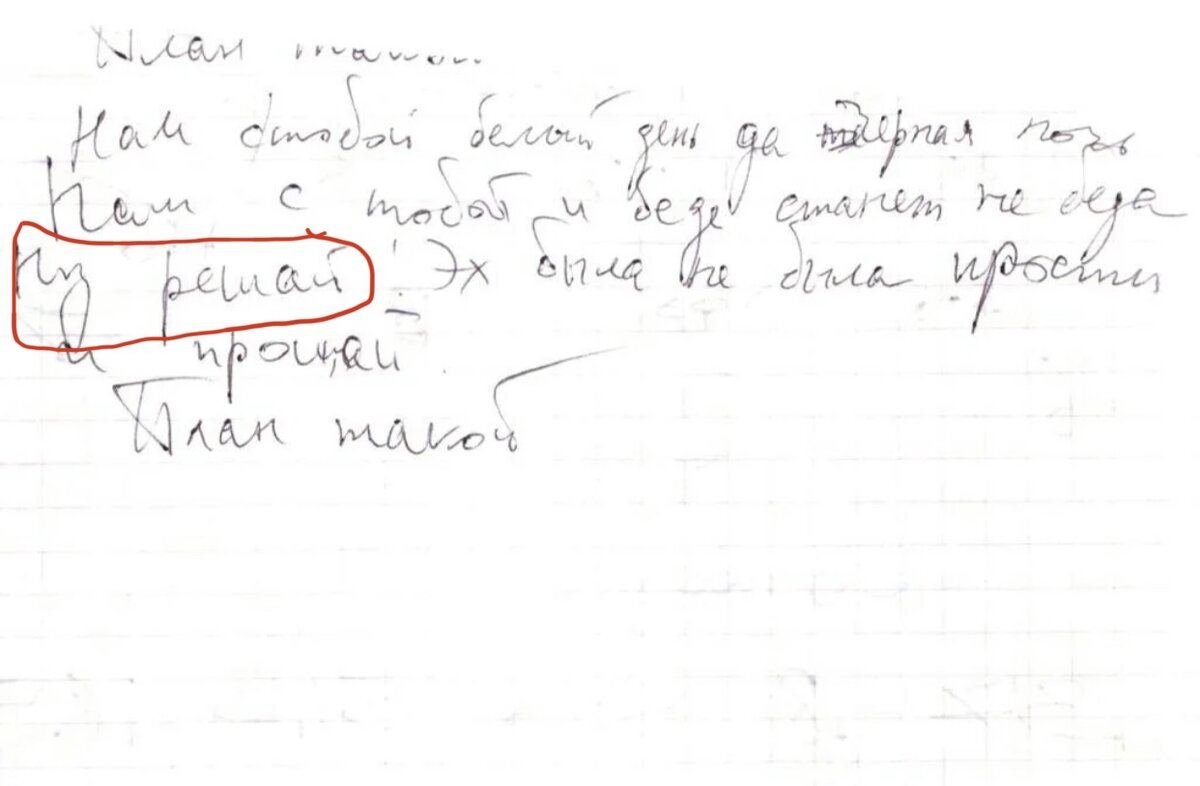 План такой...
Нам с тобой белый день да черная ночь
Нам с тобой и беде станет не беда
Ну решай! Эх была не была прости
и прощай.
План такой